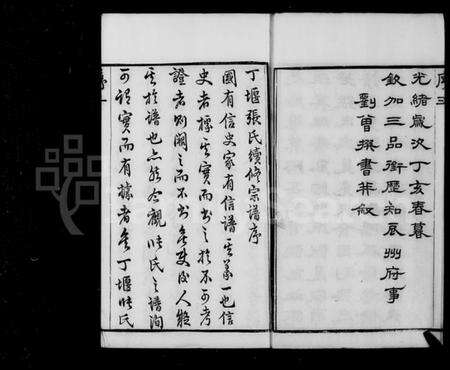 序三
光緒歲次丁亥春暮
欽加三品銜歷知 州府事
劉曾撰書并敘
丁堰張氏續修宗譜序
國有信史家有信譜其義一也信
史者據其實而書之於不可考
證者則闕之而不書矣使後人疑
其於譜也亦然今觀張氏之譜洵
可謂實而有據者矣丁堰張氏
序一